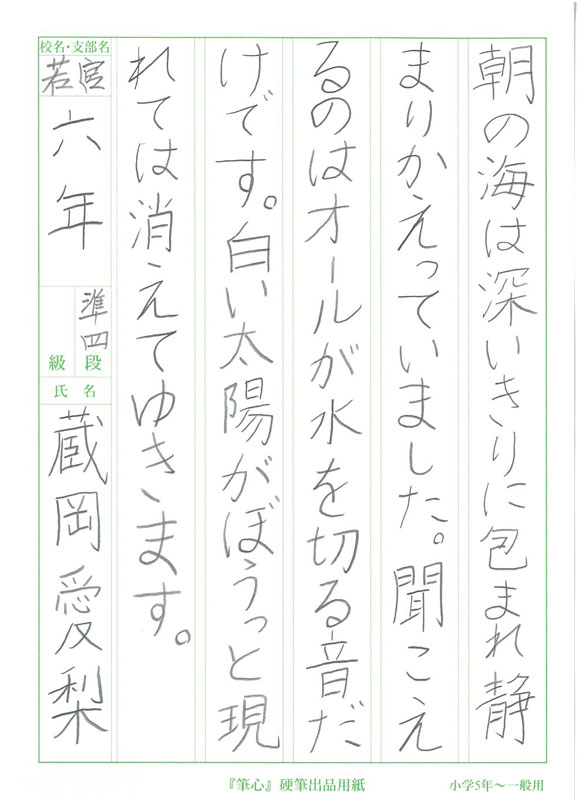 朝の海は深いきりに包まれ静
まりかえっていました。聞こえ
るのはオールが水を切る音だ
けです。白い太陽がぼうっと現
れては消えてゆきます。
校名・支部名
若宮
六年
準四
級段
氏名
蔵岡愛梨
『筆心』硬筆出品用紙
小学5年～一般用